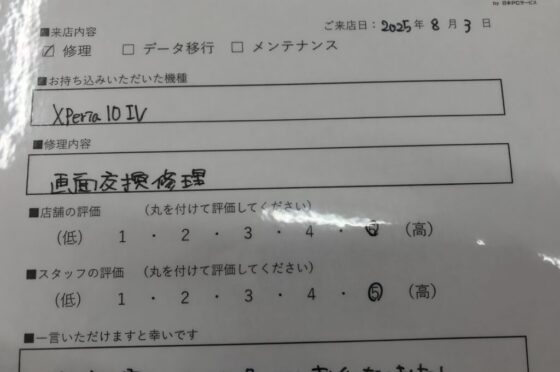 by 日本PCサービス
ご来店日：2025年 8月 3日
■来店内容
☑ 修理 □ データ移行 □ メンテナンス
■お持ち込みいただいた機種
Xperia 10 IV
■修理内容
画面交換修理
■店舗の評価 （丸を付けて評価してください）
（低） 1 ・ 2 ・ 3 ・ 4 ・ 5 （高）
■スタッフの評価 （丸を付けて評価してください）
（低） 1 ・ 2 ・ 3 ・ 4 ・ 5 （高）
■一言いただけますと幸いです